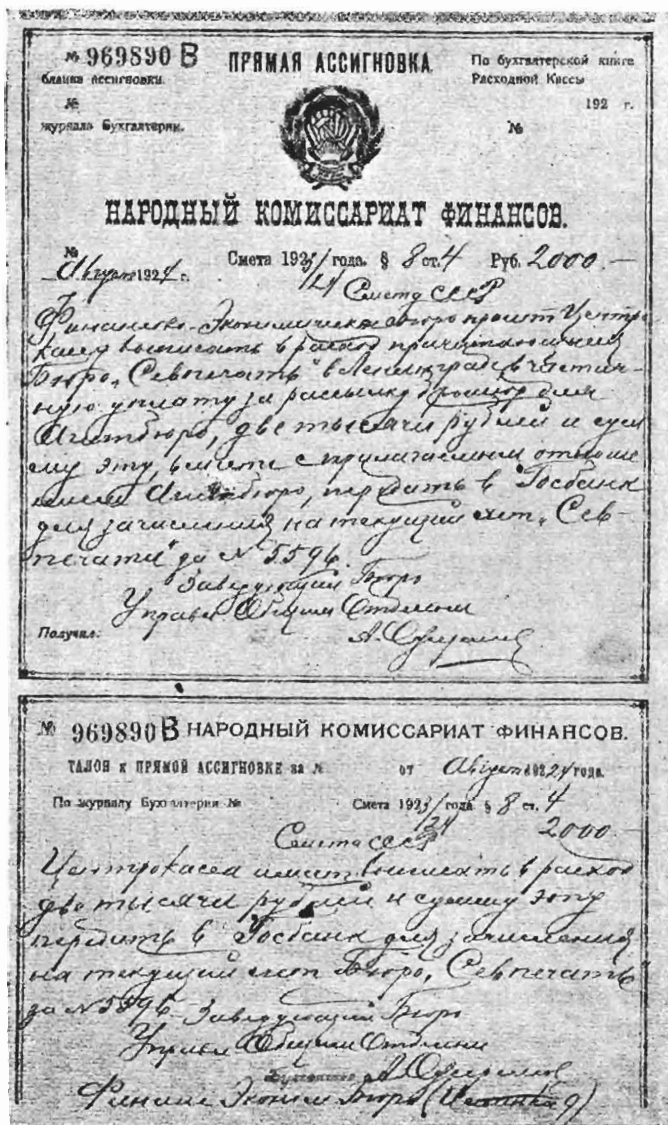 № 969890 В
бланка ассигновки.
№
журнала Бухгалтерии.
ПРЯМАЯ АССИГНОВКА.
По бухгалтерской книге
Расходной Кассы
192 г.
№
НАРОДНЫЙ КОМИССАРИАТ ФИНАНСОВ.
№
Август 1924 г.
Смета 1923/24 года. § 8 ст. 4 Руб. 2000.—
Смета СССР
Финансово-Экономическое бюро просит Центро-
кассу выписать в расход причитающиеся
Бюро „Севпечать" в Ленинграде, в частич-
ную уплату за рассылку брошюр для
Агитбюро, две тысячи рублей и сум
му эту, вместе с прилагаемым отноше
нием Агитбюро, передать в Госбанк
для зачисления на текущий счет „Сев-
печати" за № 5596.
Заведующий Бюро
Управл. Общим Отделом
Получил:
А.
№ 969890 В НАРОДНЫЙ КОМИССАРИАТ ФИНАНСОВ.
ТАЛОН к ПРЯМОЙ АССИГНОВКЕ за № от Август 1924 года.
По журналу Бухгалтерии № Смета 1923/24 года § 8 ст. 4
Смета СССР 2000.—
Центрокасса имеет выписать в расход
две тысячи рублей и сумму эту
передать в Госбанк для зачисления
на текущий счет Бюро „Севпечать"
за № 5596. Заведующий Бюро
Управл. Общим Отделом
А.
Финанс. Эконом. Бюро